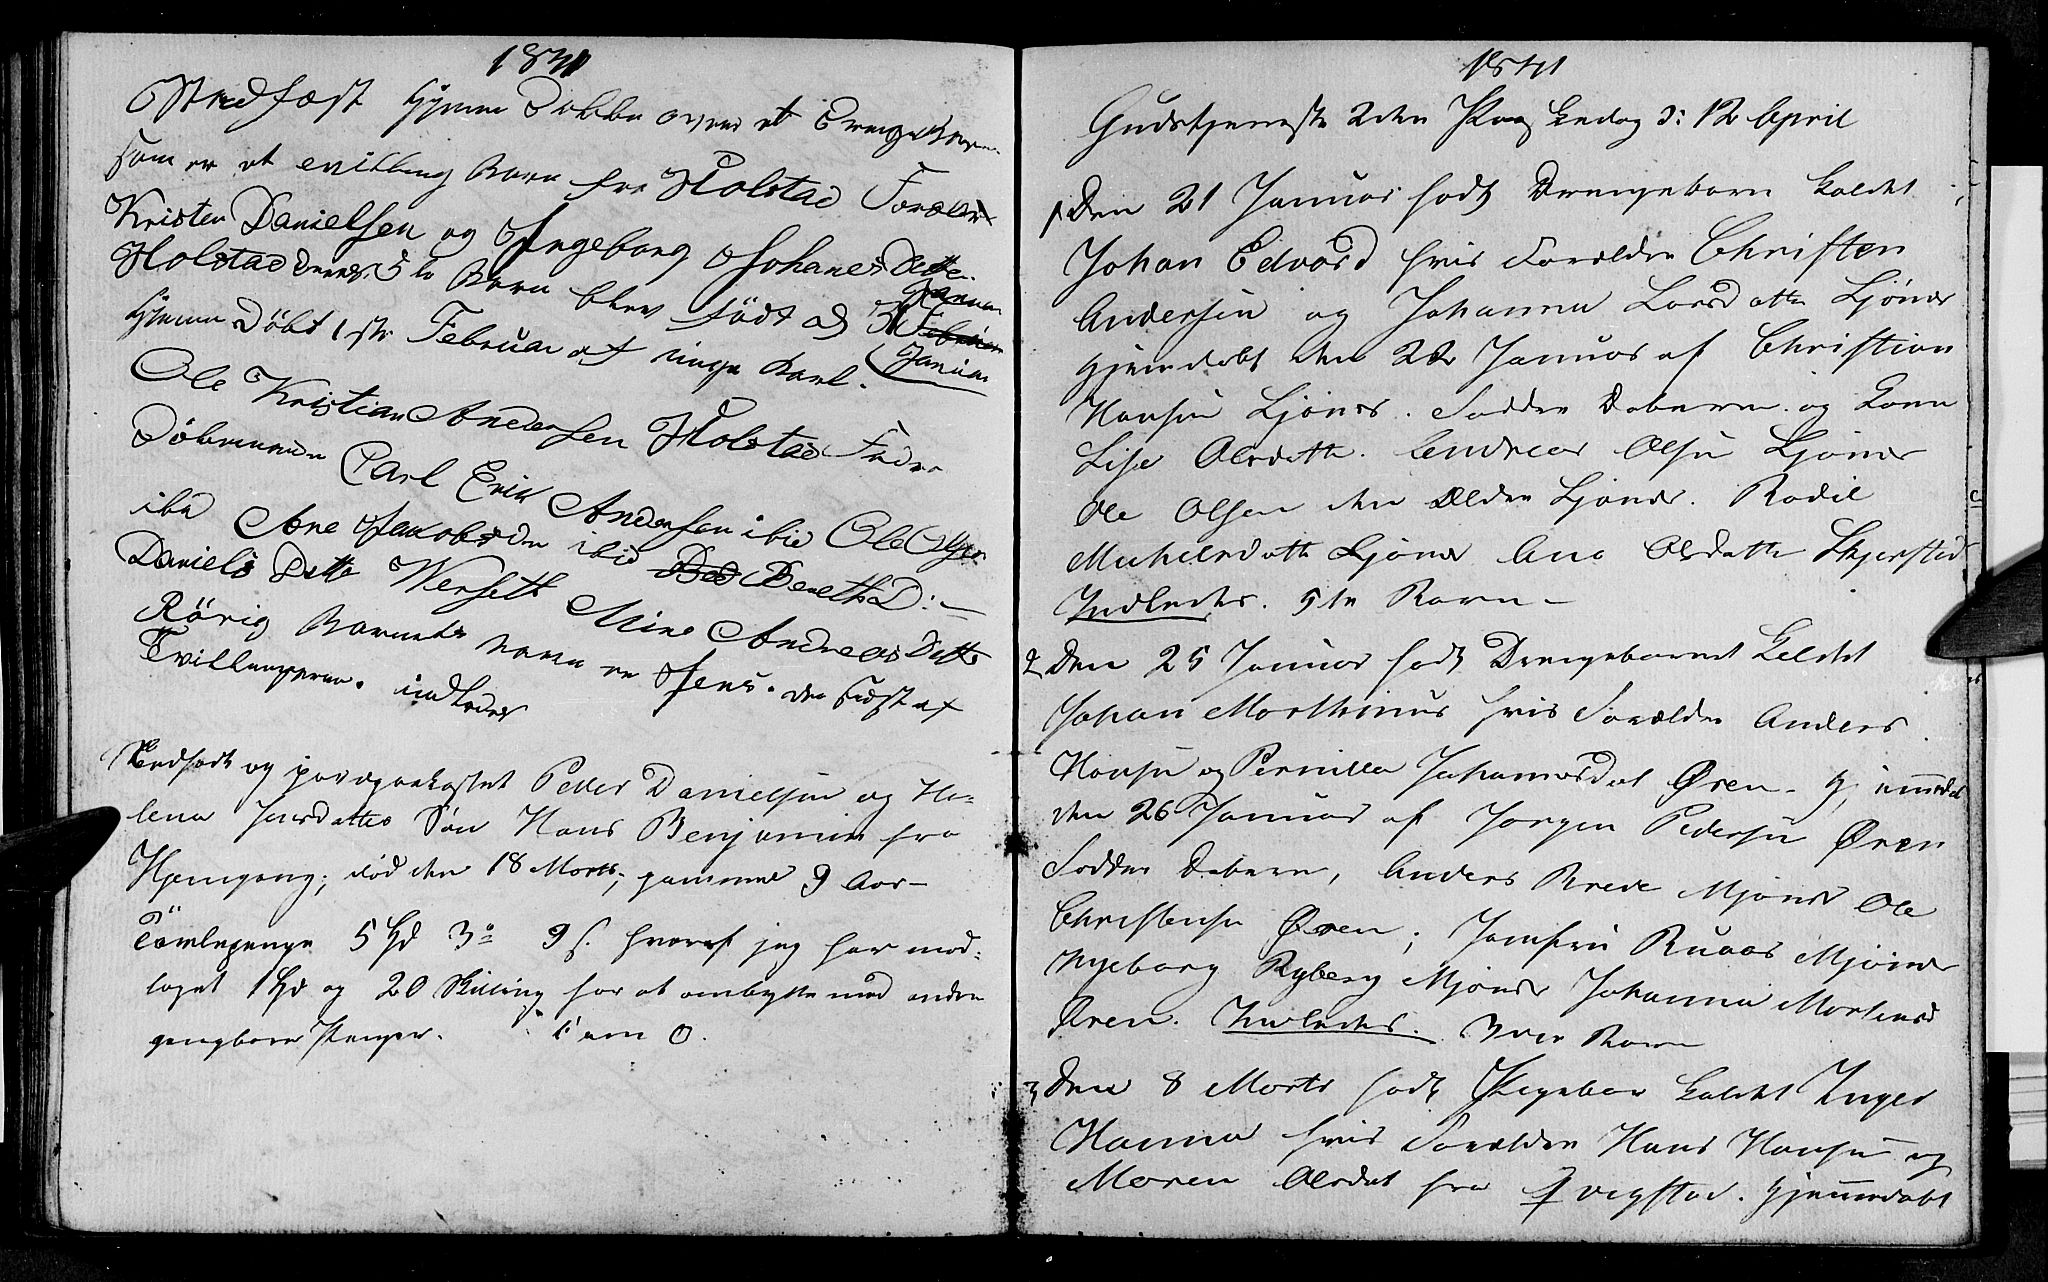 1841
Stadfæst Hjemme Døbte over et Drengebarn
som er et tvilling Barn fra Holstad Forældr
Kristen Danielsen og Ingeborg Johanes Datte
Holstad Deres 5te Barn blev født d 31 Januar
Hjemme Døbt 1ste Februar af unge Karl. Januar
Ole Kristian Andersen Holstad Fadre
Döbemanden Carl Erik Andersen ibid Ole
ibd Ane Jakobs Da ibid Bereth D:
Daniels Datte Werseth Mine Andreas Datte
Rörig Barnets navn er Jens. den sidst af
Tvillingerne. indledes
Jordfæst og Peder Danielsen og He-
lena Jensdatters Søn Hans Benjamin fra
Hjemgang; død den 18 Marts; gammel 9 Aar
Tavlepenge 5 Spd 3 o 9 s. hvoraf jeg har mod-
taget 1 Spd og 20 Skilling for at ombytte med andre
gangbare Penger.
1841
Gudstjeneste 2den Paaskedag d: 12 April
1 Den 21 Januar født Drengebarn kaldet
Johan Edvard hvis Forældre Christen
Andersen og Johanna Larsdatter Ljønes
hjemdøbt den 22 Januar af Christian
Hansen Ljønes. Fadder Døberen og Kone
Lise Olsdatter. Andreas Olsen Ljønes
Ole Olsen den Ældre Ljønes. Bodil
Michelsdatte Ljønes Ane Olsdatte Skjerstad
Indledes. 5te Barn
2 Den 25 Januar født Drengebarnet kaldet
Johan Morthinus hvis Forældre Anders
Hansen og Pernilla Johannesdat Øren. Hjemmedøbt
den 26 Januar af Jørgen Pedersen Øren
Fadder Døberen, Anders Brede Mjønes Ole
Christensen Øren; Jomfru Ruaas Mjønes
Ingeborg Ryberg Mjønes Johanna Mortensd
Øren. Indledes. 3die Barn
3 Den 8 Marts født Pigebarn kaldet Inger
Hanna hvis Forældre Hans Hansen og
Maren Olsdat fra Ivigstad. Hjemmedøbt